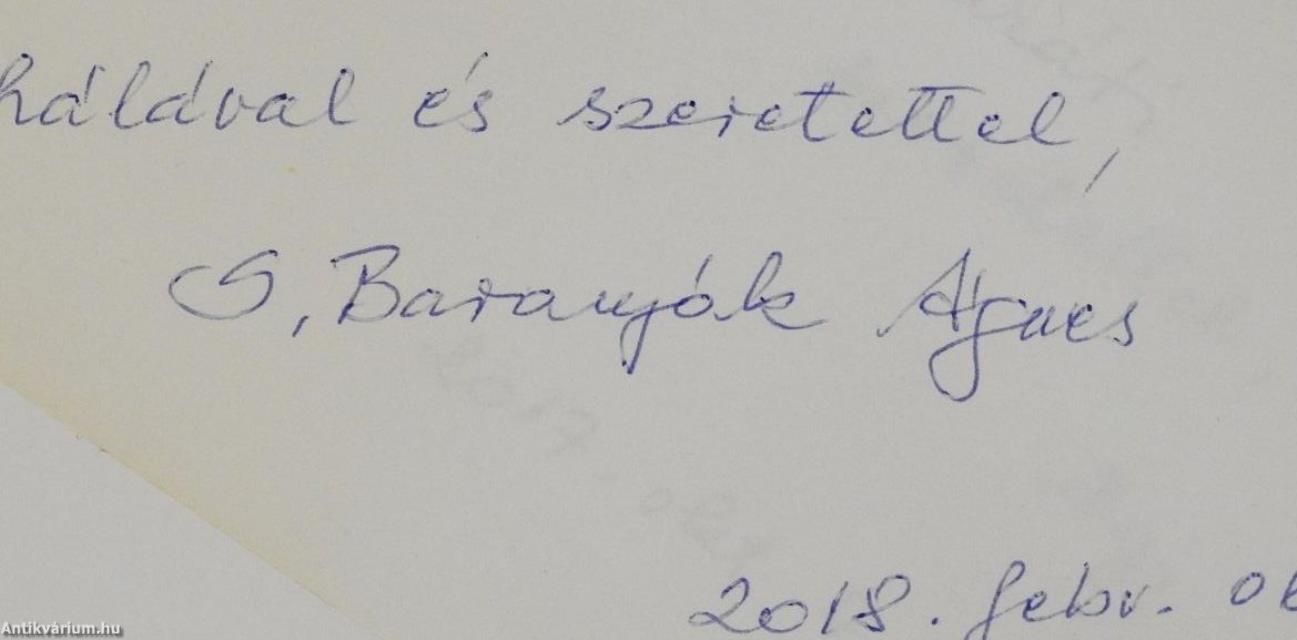 hálával és szeretettel,
S. Baranyák Ágnes
2018. febr. 06
Antikvárium.hu